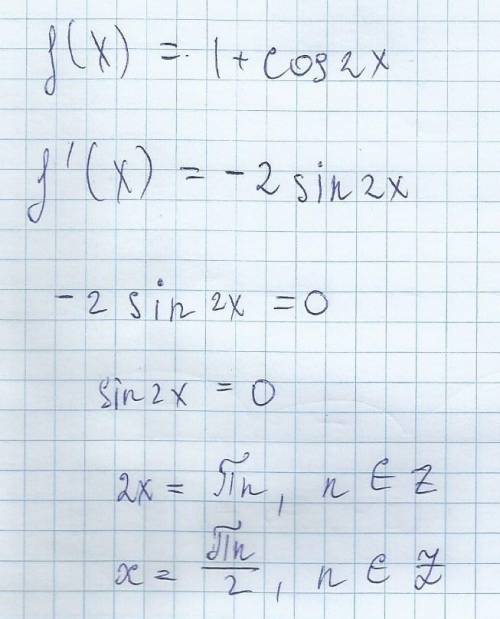 f(x) = 1 + cos 2x
f'(x) = -2 sin 2x
-2 sin 2x = 0
sin 2x = 0
2x = πn, n ∈ Z
x = πn/2, n ∈ Z